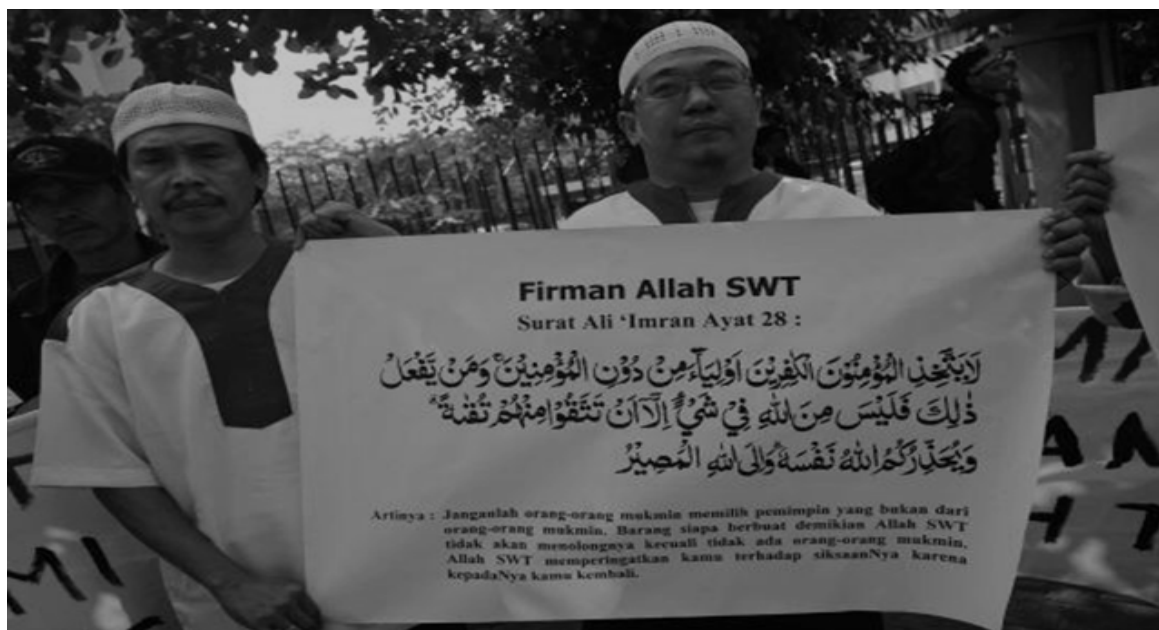 Firman Allah SWT
Surat Ali ‘Imran Ayat 28 :
لَا يَتَّخِذِ الْمُؤْمِنُوْنَ الْكٰفِرِيْنَ اَوْلِيَآءَ مِنْ دُوْنِ الْمُؤْمِنِيْنَۚ وَمَنْ يَّفْعَلْ
ذٰلِكَ فَلَيْسَ مِنَ اللّٰهِ فِيْ شَيْءٍ اِلَّآ اَنْ تَتَّقُوْا مِنْهُمْ تُقٰىةًۗ
وَيُحَذِّرُكُمُ اللّٰهُ نَفْسَهٗۗ وَاِلَى اللّٰهِ الْمَصِيْرُ
Artinya : Janganlah orang-orang mukmin memilih pemimpin yang bukan dari
orang-orang mukmin. Barang siapa berbuat demikian Allah SWT
tidak akan menolongnya kecuali tidak ada orang-orang mukmin.
Allah SWT memperingatkan kamu terhadap siksaanNya karena
kepadaNya kamu kembali.